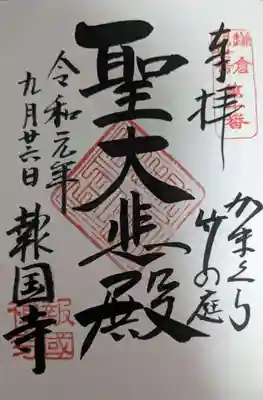 奉拝
かまくら
竹の庭
聖大悲殿
令和元年
九月廿六日
報国寺
鎌倉第十番